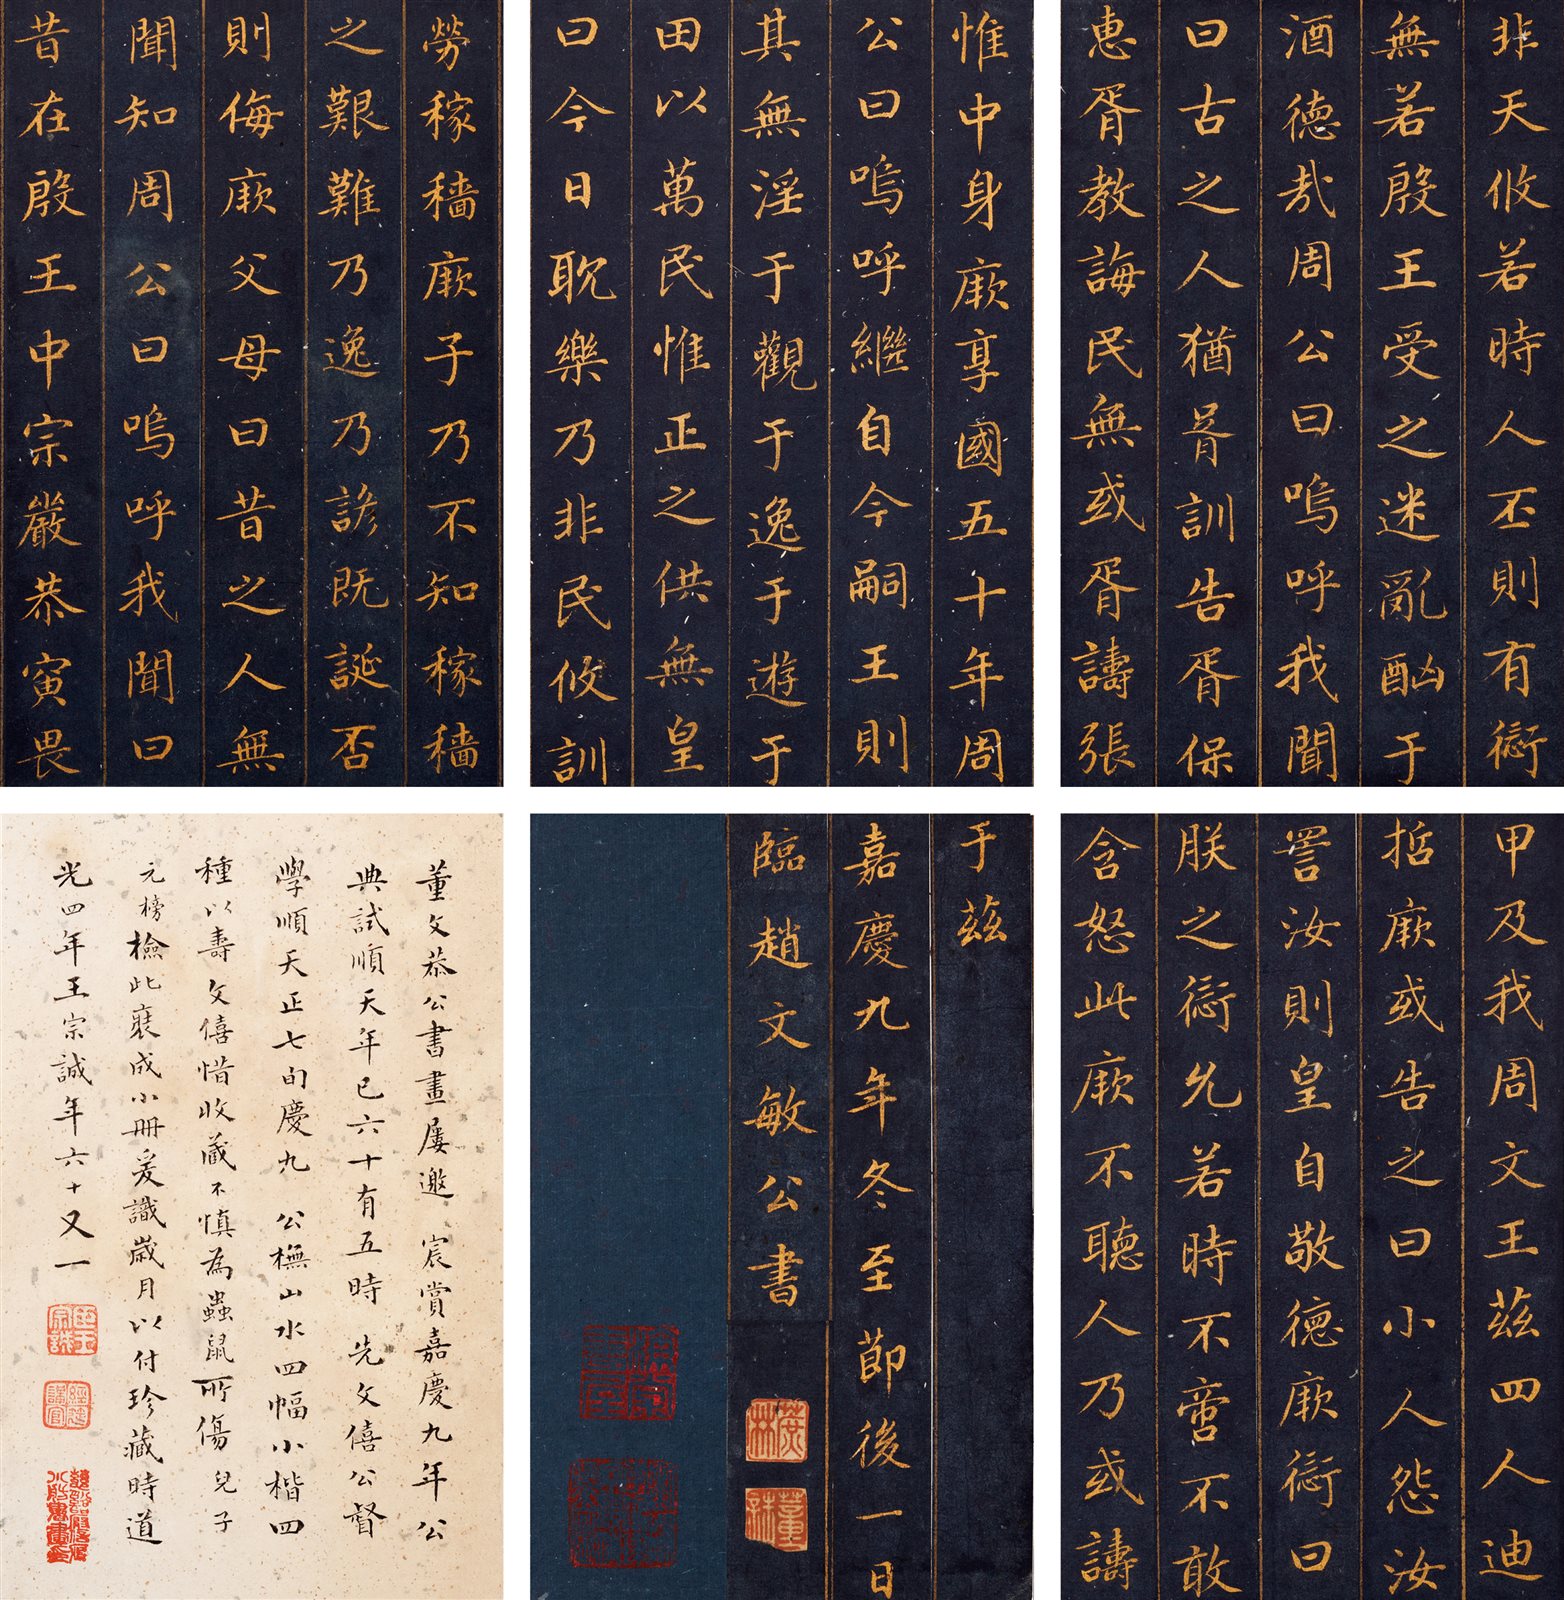 勞稼穡厥子乃不知稼穡
之艱難乃逸乃諺既誕否
則侮厥父母曰昔之人無
聞知周公曰嗚呼我聞曰
昔在殷王中宗嚴恭寅畏
惟中身厥享國五十年周
公曰嗚呼繼自今嗣王則
其無淫于觀于逸于遊于
田以萬民惟正之供無皇
曰今日耽樂乃非民攸訓
非天攸若時人丕則有愆
無若殷王受之迷亂酗于
酒德哉周公曰嗚呼我聞
曰古之人猶胥訓告胥保
惠胥教誨民無或胥譸張
甲及我周文王茲四人迪
哲厥或告之曰小人怨汝
詈汝則皇自敬德厥愆曰
朕之愆允若時不啻不敢
含怒此厥不聽人乃或譸
于茲
嘉慶九年冬至節後一日
臨趙文敏公書
董文恭公書畫屢邀宸賞嘉慶九年公
典試順天年已六十有五時先文僖公督
學順天正七旬慶九公橅山水四幅小楷四
種以壽文僖惜收藏不慎為蟲鼠所傷兒子
元榜檢此裒成小冊爰識歲月以付珍藏時道
光四年王宗誠年六十又一